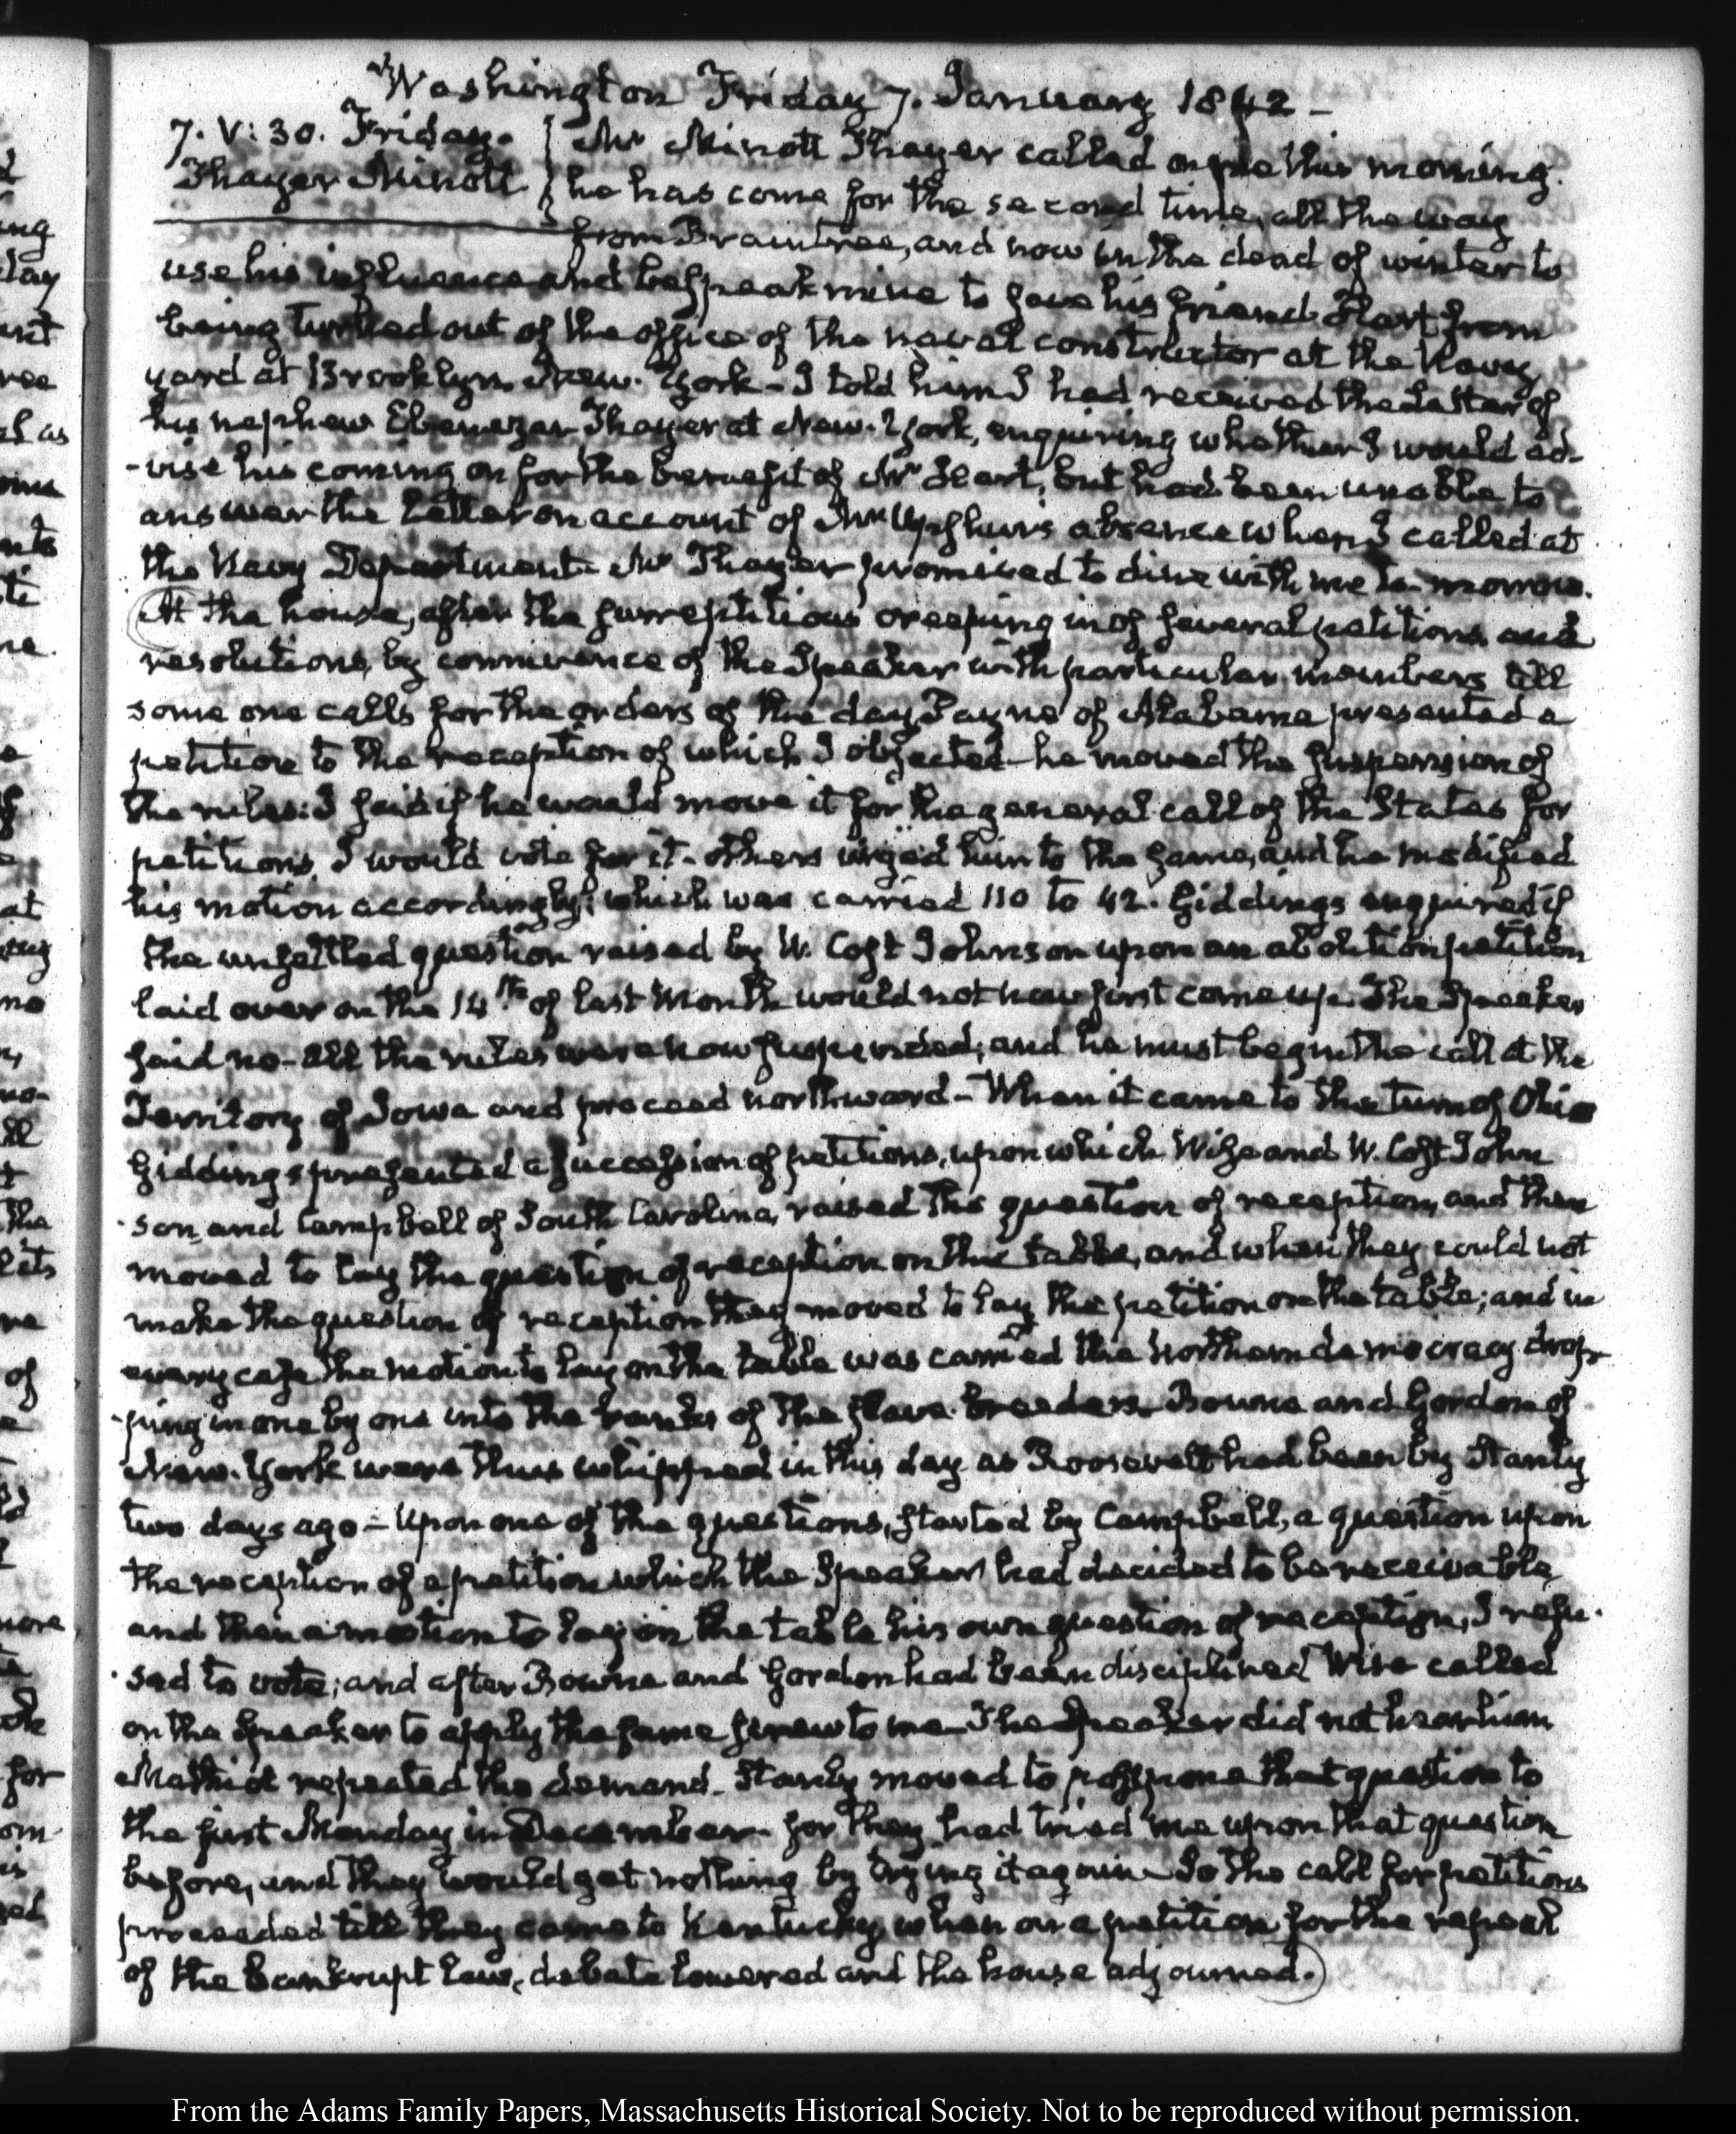 Washington Friday 7. January 1842 –
7. V: 30. Friday.
Thayer Minott
Mr Minott Thayer called on me this morning.
he has come for the second time, all the way
from Braintree, and now in the dead of winter to
use his influence and bespeak mine to save his friend Hart from
being turned out of the office of the naval constructor at the Navy
yard at Brooklyn New-York – I told him I had received the Letter of
his nephew Ebenezer Thayer at New-York, enquiring whether I would ad-
-vise his coming on for the benefit of Mr Hart, but had been unable to
answer the Letter on account of Mr Upshur's absence when I called at
the Navy Department – Mr Thayer promised to dine with me to-morrow.
At the house, after the surreptitious creeping in of several petitions and
resolutions, by connivance of the Speaker with particular members till
some one calls for the orders of the day Payne of Alabama presented a
petition to the reception of which I objected – he moved the suspension of
the rules: I said if he would move it for the general call of the States for
petitions, I would vote for it – others urged him to the same, and he modified
his motion accordingly; which was carried 110 to 42. Giddings enquired if
the unsettled question raised by W. Cost Johnson upon an abolition petition
laid over on the 14th of last Month would not now first come up. The Speaker
said no – all the rules were now suspended, and he must begin the call at the
Territory of Iowa and proceed northward – When it came to the turn of Ohio
Giddings presented a succession of petitions, upon which Wise and W. Cost John
-son, and Campbell of South Carolina, raised the question of reception, and then
moved to lay the question of reception on the table, and when they could not
make the question of reception they moved to lay the petition on the table; and in
every case the motion to lay on the table was carried the Northern democracy drop-
-ping in one by one into the ranks of the slave-breeders. Bowne and Gordon of
New-York were thus whipped in this day as Roosevelt had been by Stanly
two days ago – Upon one of the questions, started by Campbell, a question upon
the reception of a petition which the Speaker had decided to be receivable,
and then a motion to lay on the table his own question of reception, I refu-
-sed to vote; and after Bowne and Gordon had been disciplined Wise called
on the Speaker to apply the same screw to me – The Speaker did not hear him
Mathiot repeated the demand – Stanly moved to postpone that question to
the first Monday in December – for they had tried me upon that question
before, and they would get nothing by trying it again – So the call for petitions
proceeded till they came to Kentucky, when on a petition for the repeal
of the bankrupt Law, debate lowered and the house adjourned.
From the Adams Family Papers, Massachusetts Historical Society. Not to be reproduced without permission.